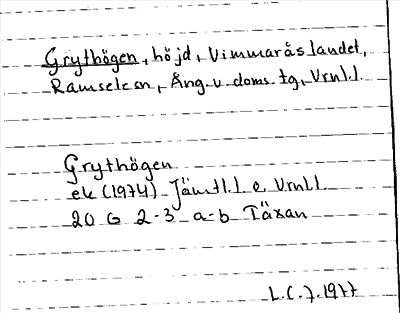 Grythögen, höjd, Vimmaråslandet,
Ramselesn, Ång. v. doms. tg, Vrnl.l.
Grythögen
ek (1974) Jämtl.l. o. Vrnl.l.
20 G 2-3 a-b Täxan
L.C.J. 1977